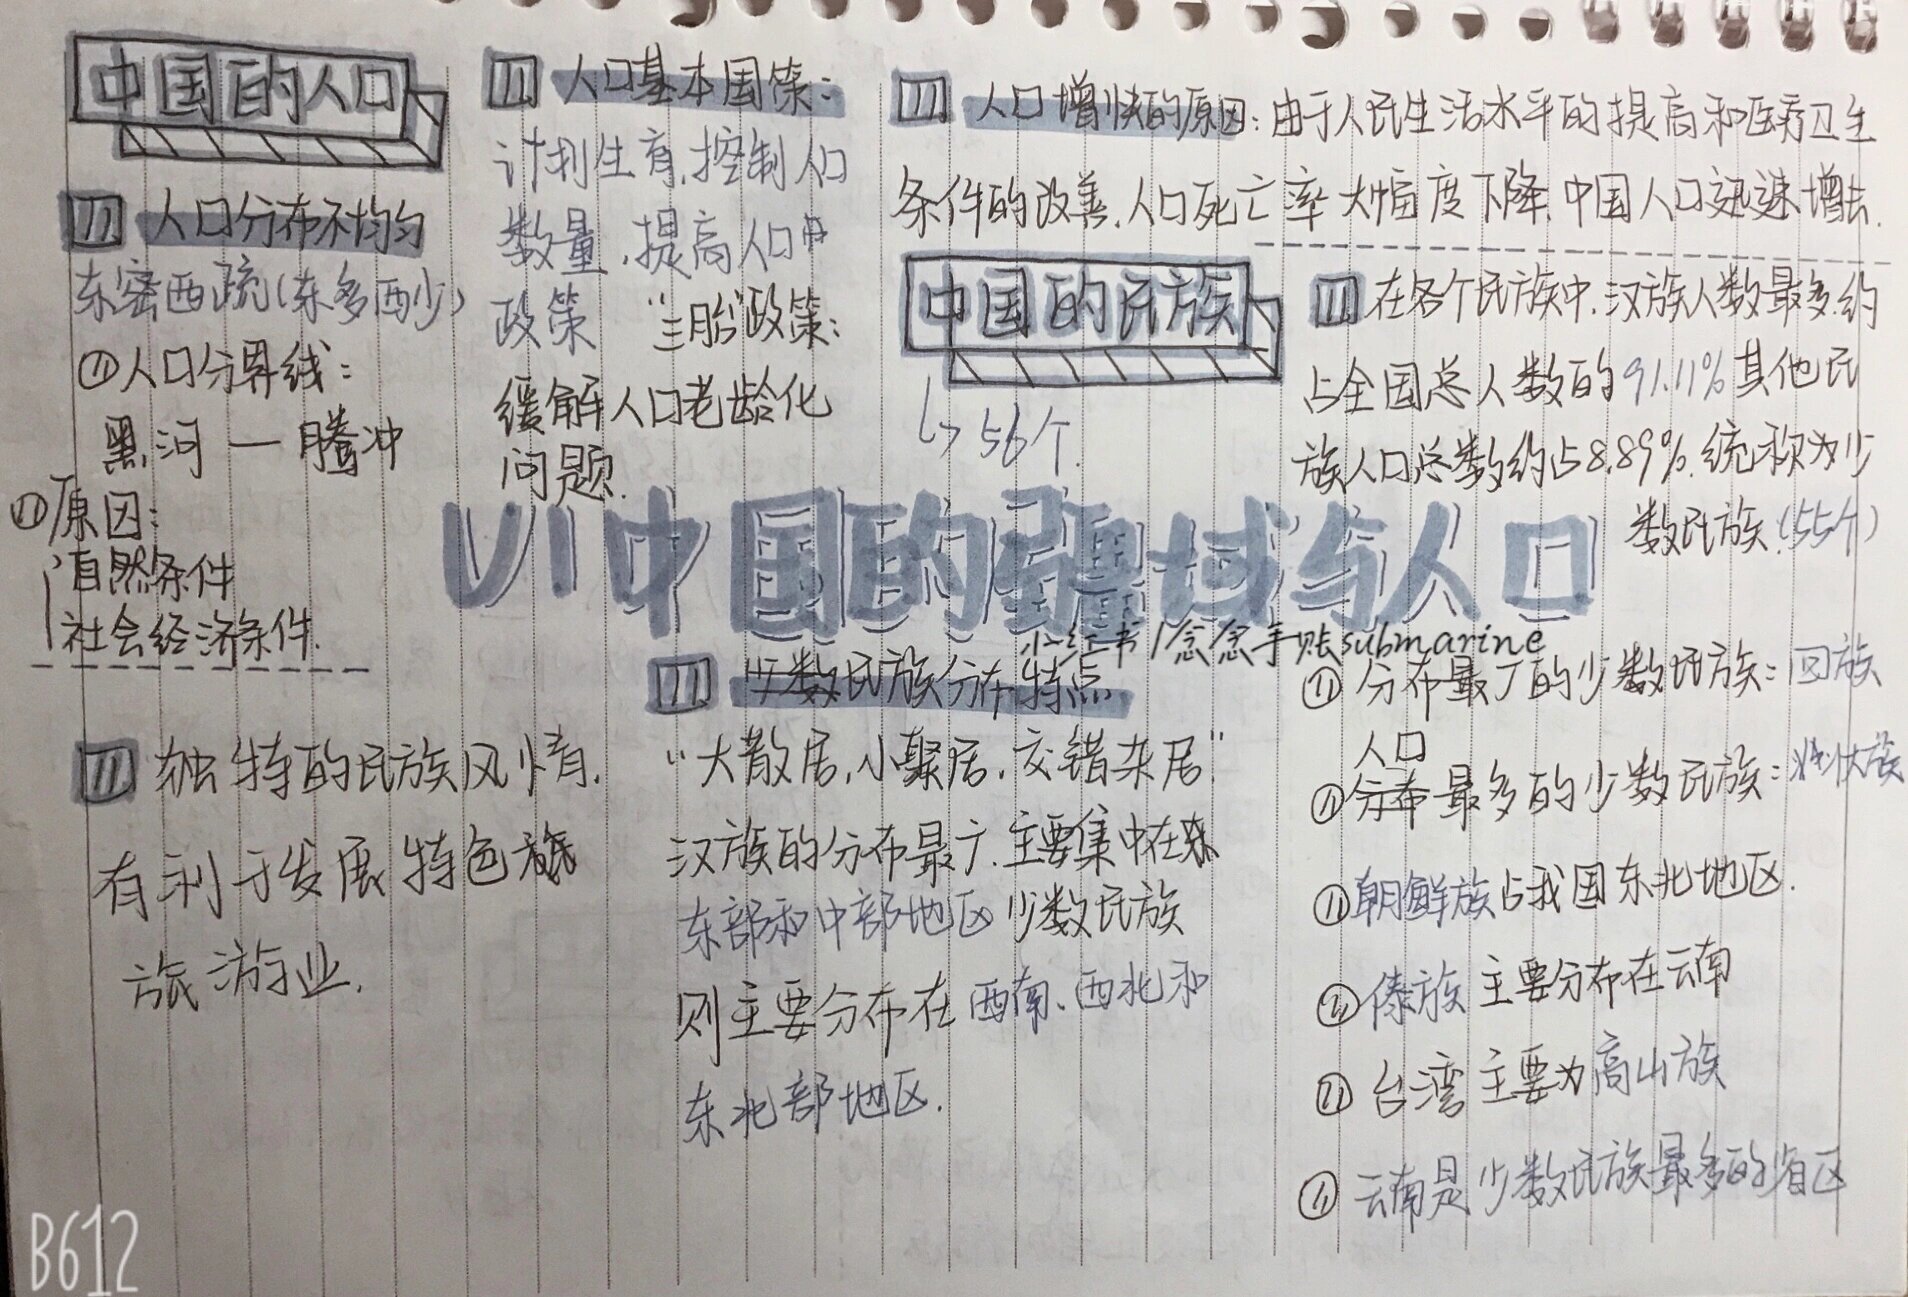 中国的人口
人口分布不均匀
东密西疏(东多西少)
①人口分界线:
黑河一腾冲
①原因:
自然条件
社会经济条件.
人口基本国策:
计划生育,控制人口
数量,提高人口
政策 "三胎"政策:
缓解人口老龄化
问题.
人口增快的原因:由于人民生活水平的提高和医疗卫生
条件的改善,人口死亡率大幅度下降,中国人口迅速增长.
中国的民族
56个.
在各个民族中,汉族人数最多,约
占全国总人数的91.11%其他民
族人口总数约占8.89%,统称为少
数民族.(55个)
VI中国的疆域与人口
小红书/念念手账submarine
独特的民族风情.
有利于发展特色
旅游业.
少数民族分布特点
"大散居,小聚居,交错杂居"
汉族的分布最广,主要集中在东
东部和中部地区 少数民族
则主要分布在西南、西北和
东北部地区.
①分布最广的少数民族:回族
人口
①分布最多的少数民族:壮族
①朝鲜族占我国东北地区.
①傣族主要分布在云南
①台湾主要为高山族
①云南是少数民族最多的省区
B612